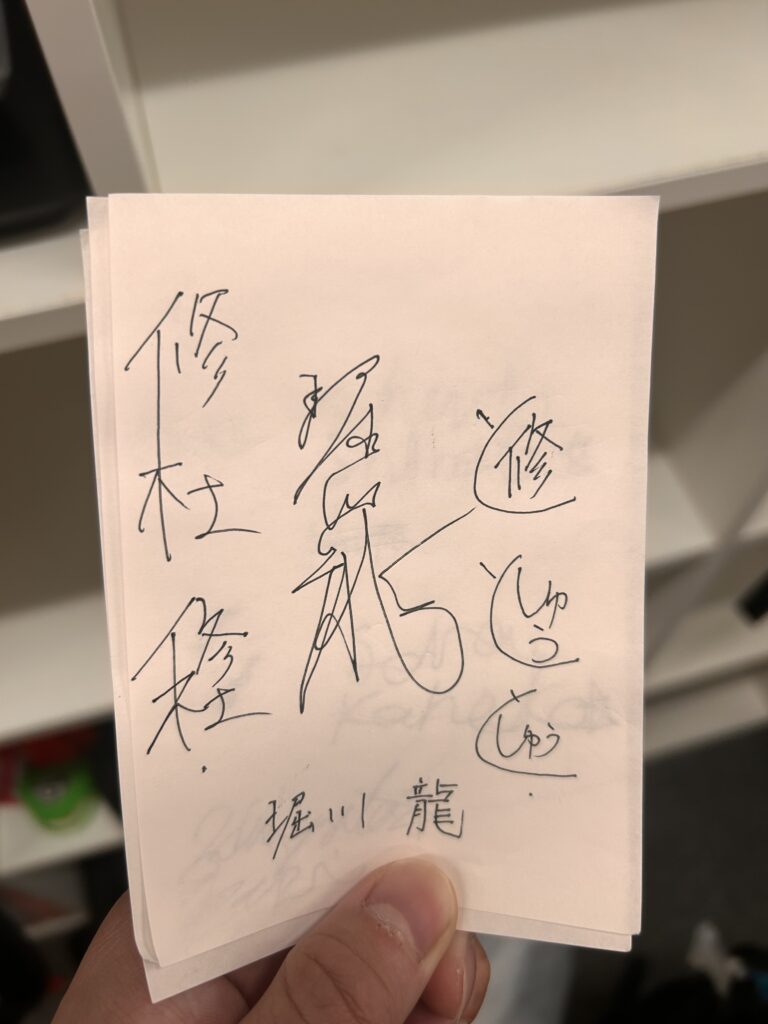 修杜
修杜
堀川龍
修
しゅう
しゅう
堀川 龍